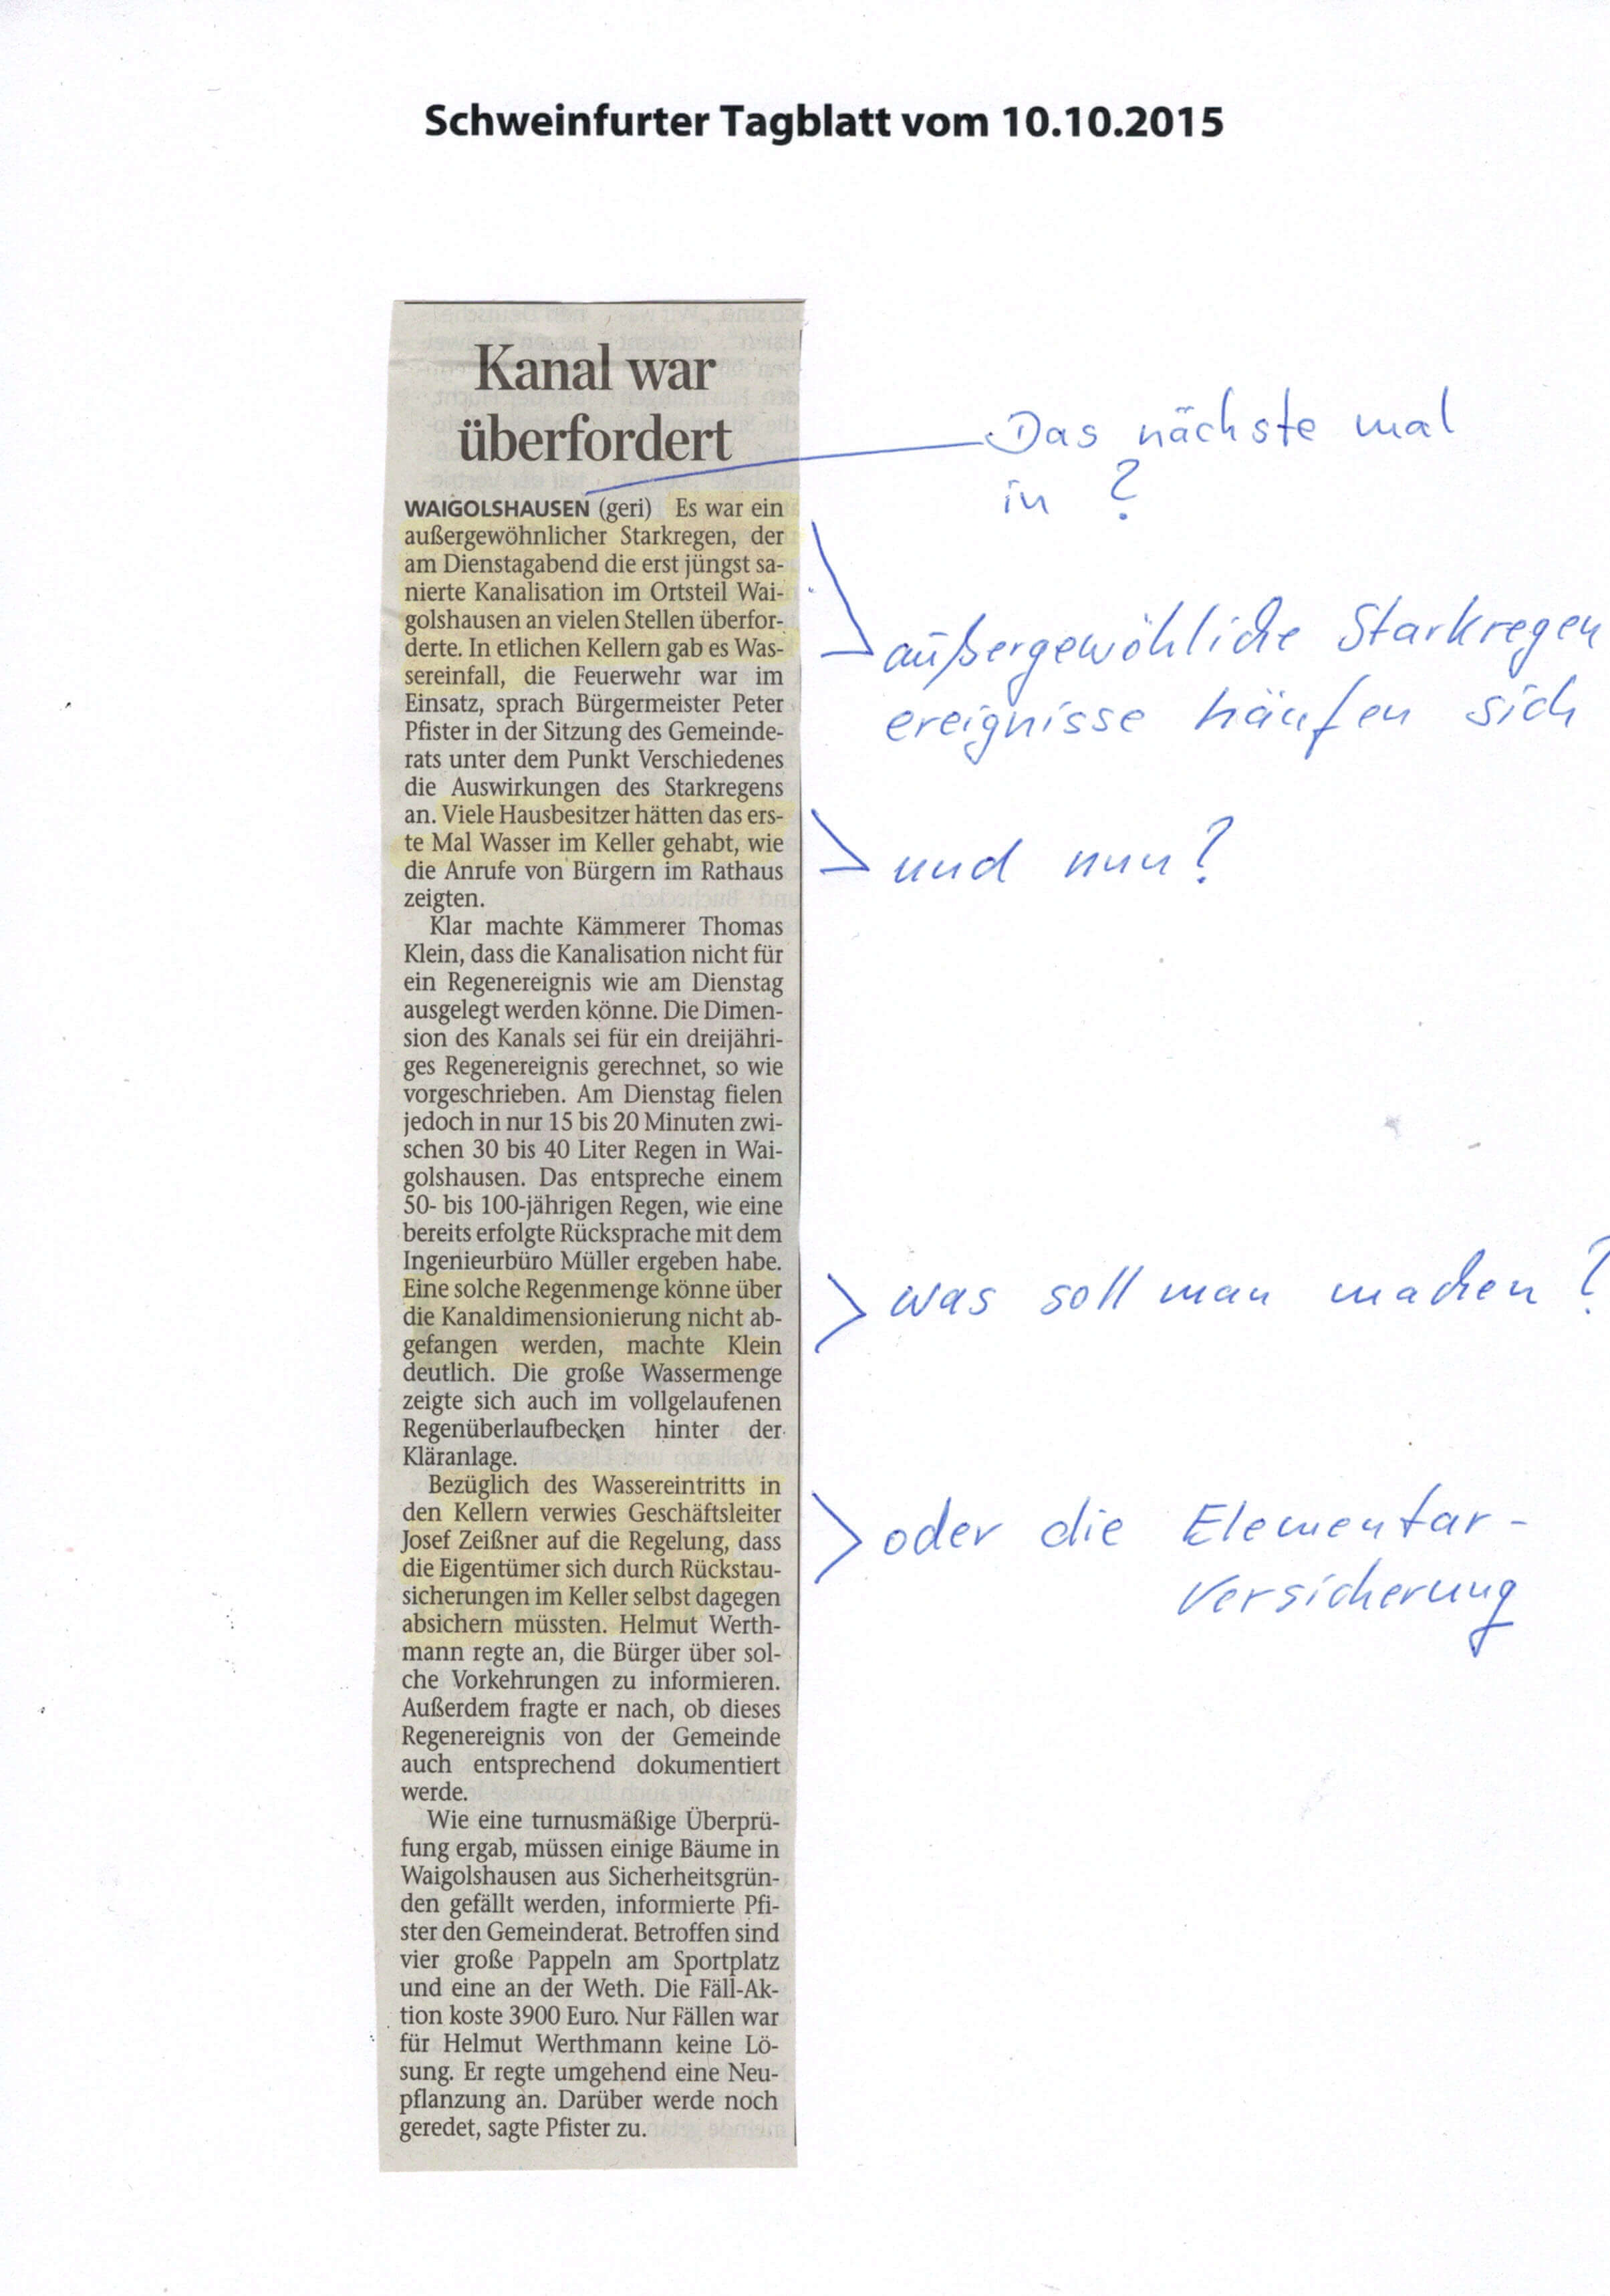 Schweinfurter Tagblatt vom 10.10.2015
Kanal war
überfordert
WAIGOLSHAUSEN (geri) Es war ein
außergewöhnlicher Starkregen, der
am Dienstagabend die erst jüngst sa-
nierte Kanalisation im Ortsteil Wai-
golshausen an vielen Stellen überfor-
derte. In etlichen Kellern gab es Was-
sereinfall, die Feuerwehr war im
Einsatz, sprach Bürgermeister Peter
Pfister in der Sitzung des Gemeinde-
rats unter dem Punkt Verschiedenes
die Auswirkungen des Starkregens
an. Viele Hausbesitzer hätten das ers-
te Mal Wasser im Keller gehabt, wie
die Anrufe von Bürgern im Rathaus
zeigten.
Klar machte Kämmerer Thomas
Klein, dass die Kanalisation nicht für
ein Regenereignis wie am Dienstag
ausgelegt werden könne. Die Dimen-
sion des Kanals sei für ein dreijähri-
ges Regenereignis gerechnet, so wie
vorgeschrieben. Am Dienstag fielen
jedoch in nur 15 bis 20 Minuten zwi-
schen 30 bis 40 Liter Regen in Wai-
golshausen. Das entspreche einem
50- bis 100-jährigen Regen, wie eine
bereits erfolgte Rücksprache mit dem
Ingenieurbüro Müller ergeben habe.
Eine solche Regenmenge könne über
die Kanaldimensionierung nicht ab-
gefangen werden, machte Klein
deutlich. Die große Wassermenge
zeigte sich auch im vollgelaufenen
Regenüberlaufbecken hinter der
Kläranlage.
Bezüglich des Wassereintritts in
den Kellern verwies Geschäftsleiter
Josef Zeißner auf die Regelung, dass
die Eigentümer sich durch Rückstau-
sicherungen im Keller selbst dagegen
absichern müssten. Helmut Werth-
mann regte an, die Bürger über sol-
che Vorkehrungen zu informieren.
Außerdem fragte er nach, ob dieses
Regenereignis von der Gemeinde
auch entsprechend dokumentiert
werde.
Wie eine turnusmäßige Überprü-
fung ergab, müssen einige Bäume in
Waigolshausen aus Sicherheitsgrün-
den gefällt werden, informierte Pfi-
ster den Gemeinderat. Betroffen sind
vier große Pappeln am Sportplatz
und eine an der Weth. Die Fäll-Ak-
tion koste 3900 Euro. Nur Fällen war
für Helmut Werthmann keine Lö-
sung. Er regte umgehend eine Neu-
pflanzung an. Darüber werde noch
geredet, sagte Pfister zu.
Das nächste mal
in ?
außergewöhliche Starkregen
ereignisse häufen sich
und nun?
was soll man machen ?
oder die Elementar-
versicherung